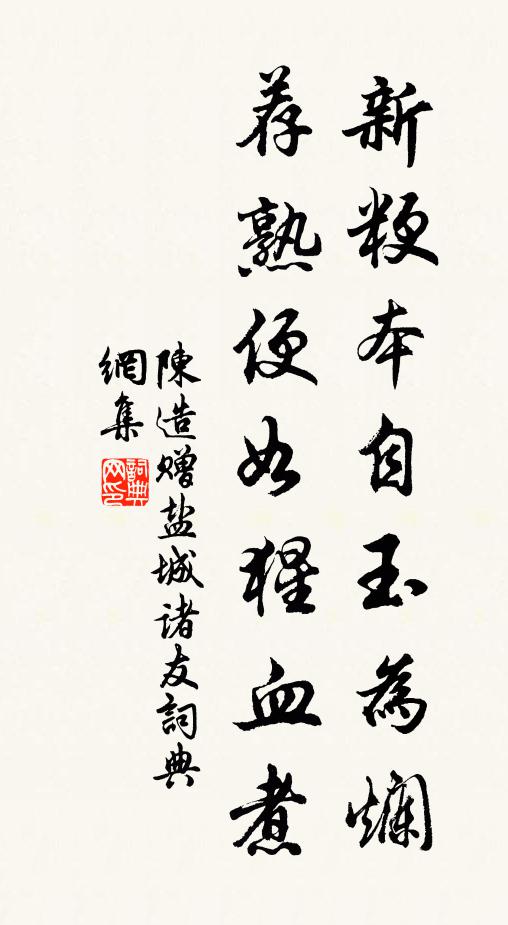 新粳本自玉為爛
荐熟便如猩血煮
陳造贈盐城诸友詞典
網集
詞典网印